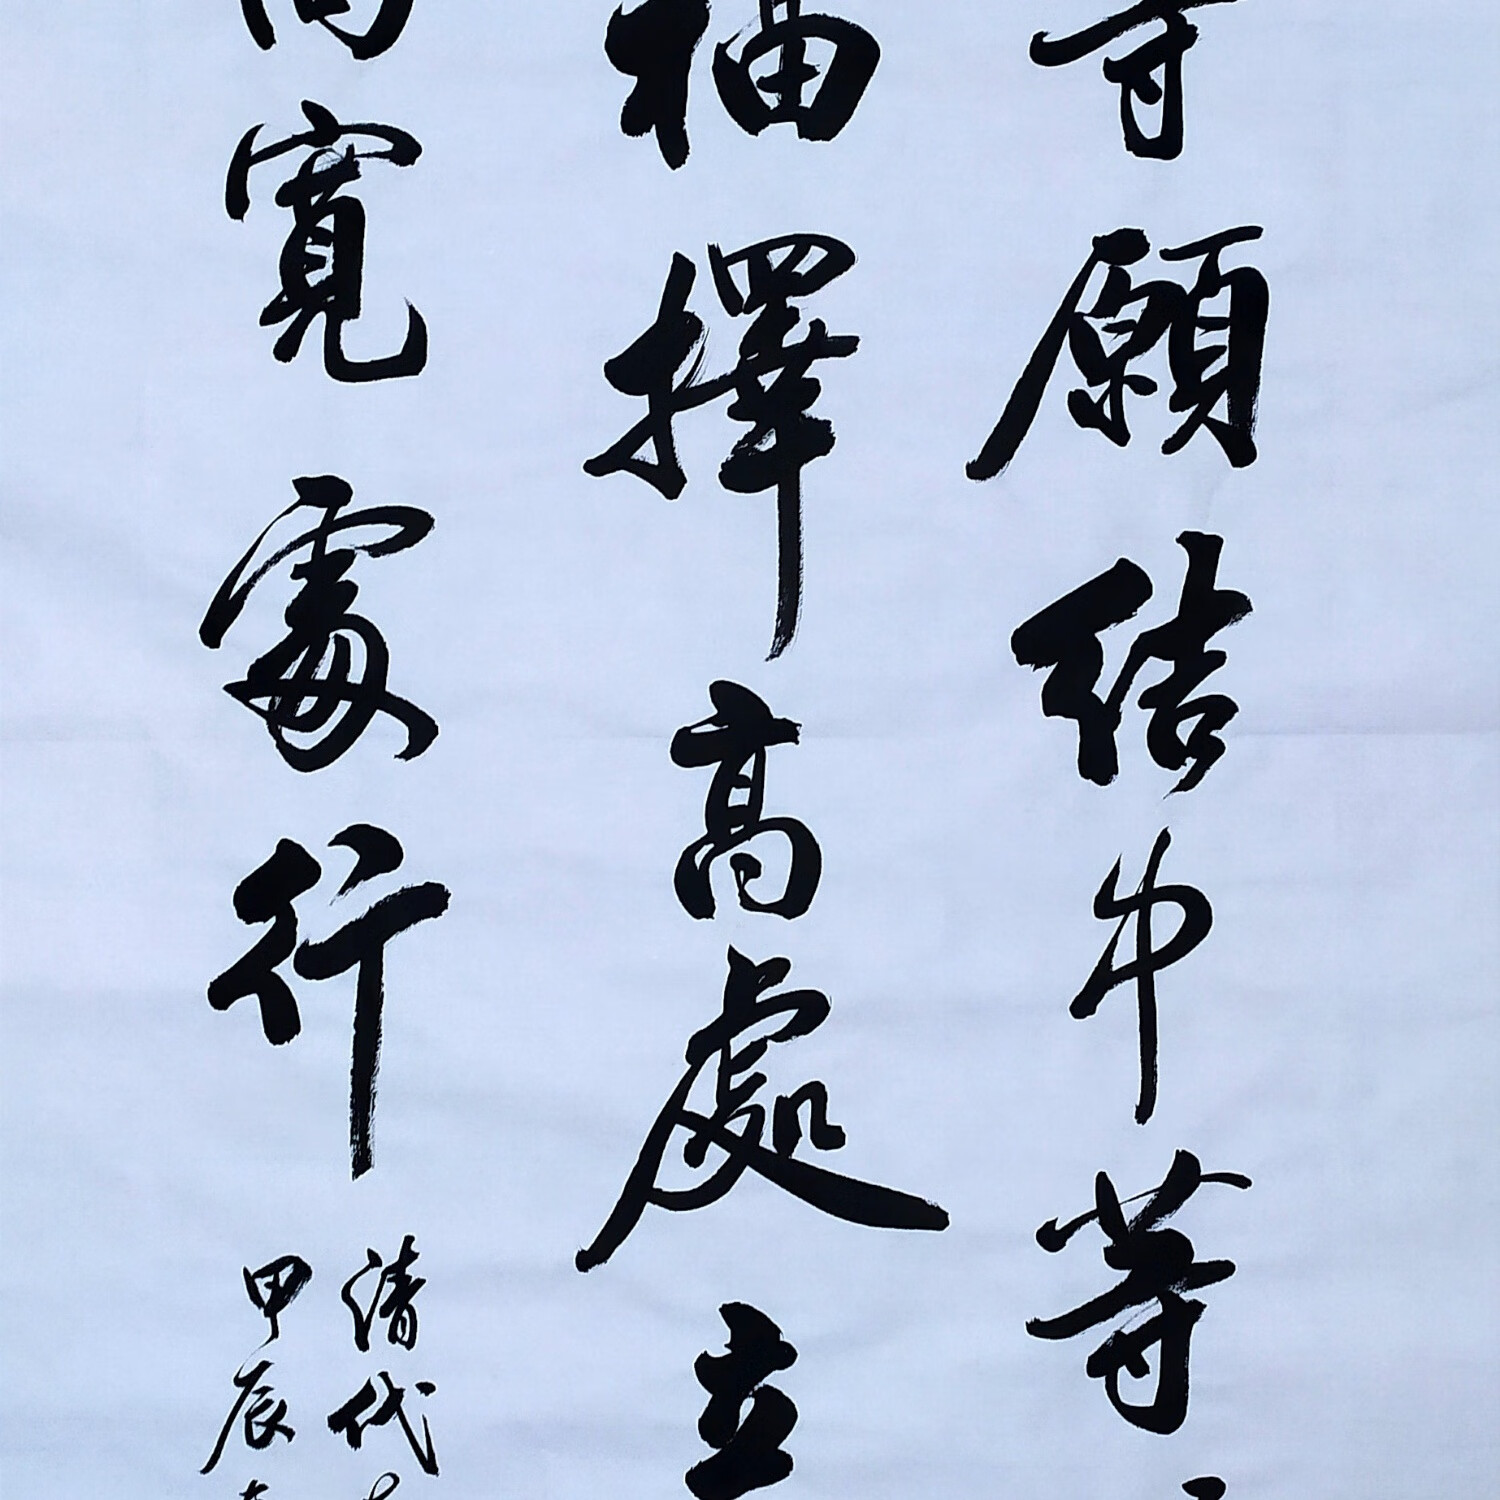 等願結中等
福擇高處立
向寬處行
清代
甲辰